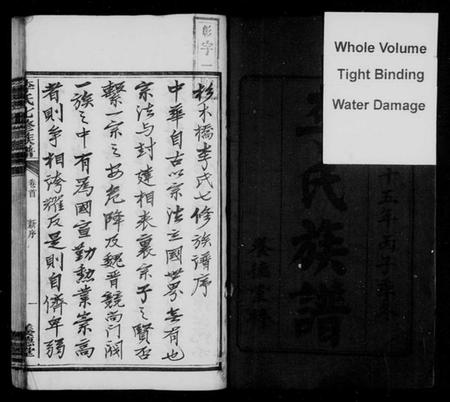 Whole Volume
Tight Binding
Water Damage
彰字一
杉木橋李氏七修族譜序
中華自古以宗法立國世界無有也
宗法与封建相表裏宗子之賢否
繫一宗之安危降及魏晋競尚門閥
一族之中有為國宣勤勲業崇高
者則争相誇耀反是則自儕卑弱
李氏七修族譜
卷首
新序
一
氏族譜
十五年丙子